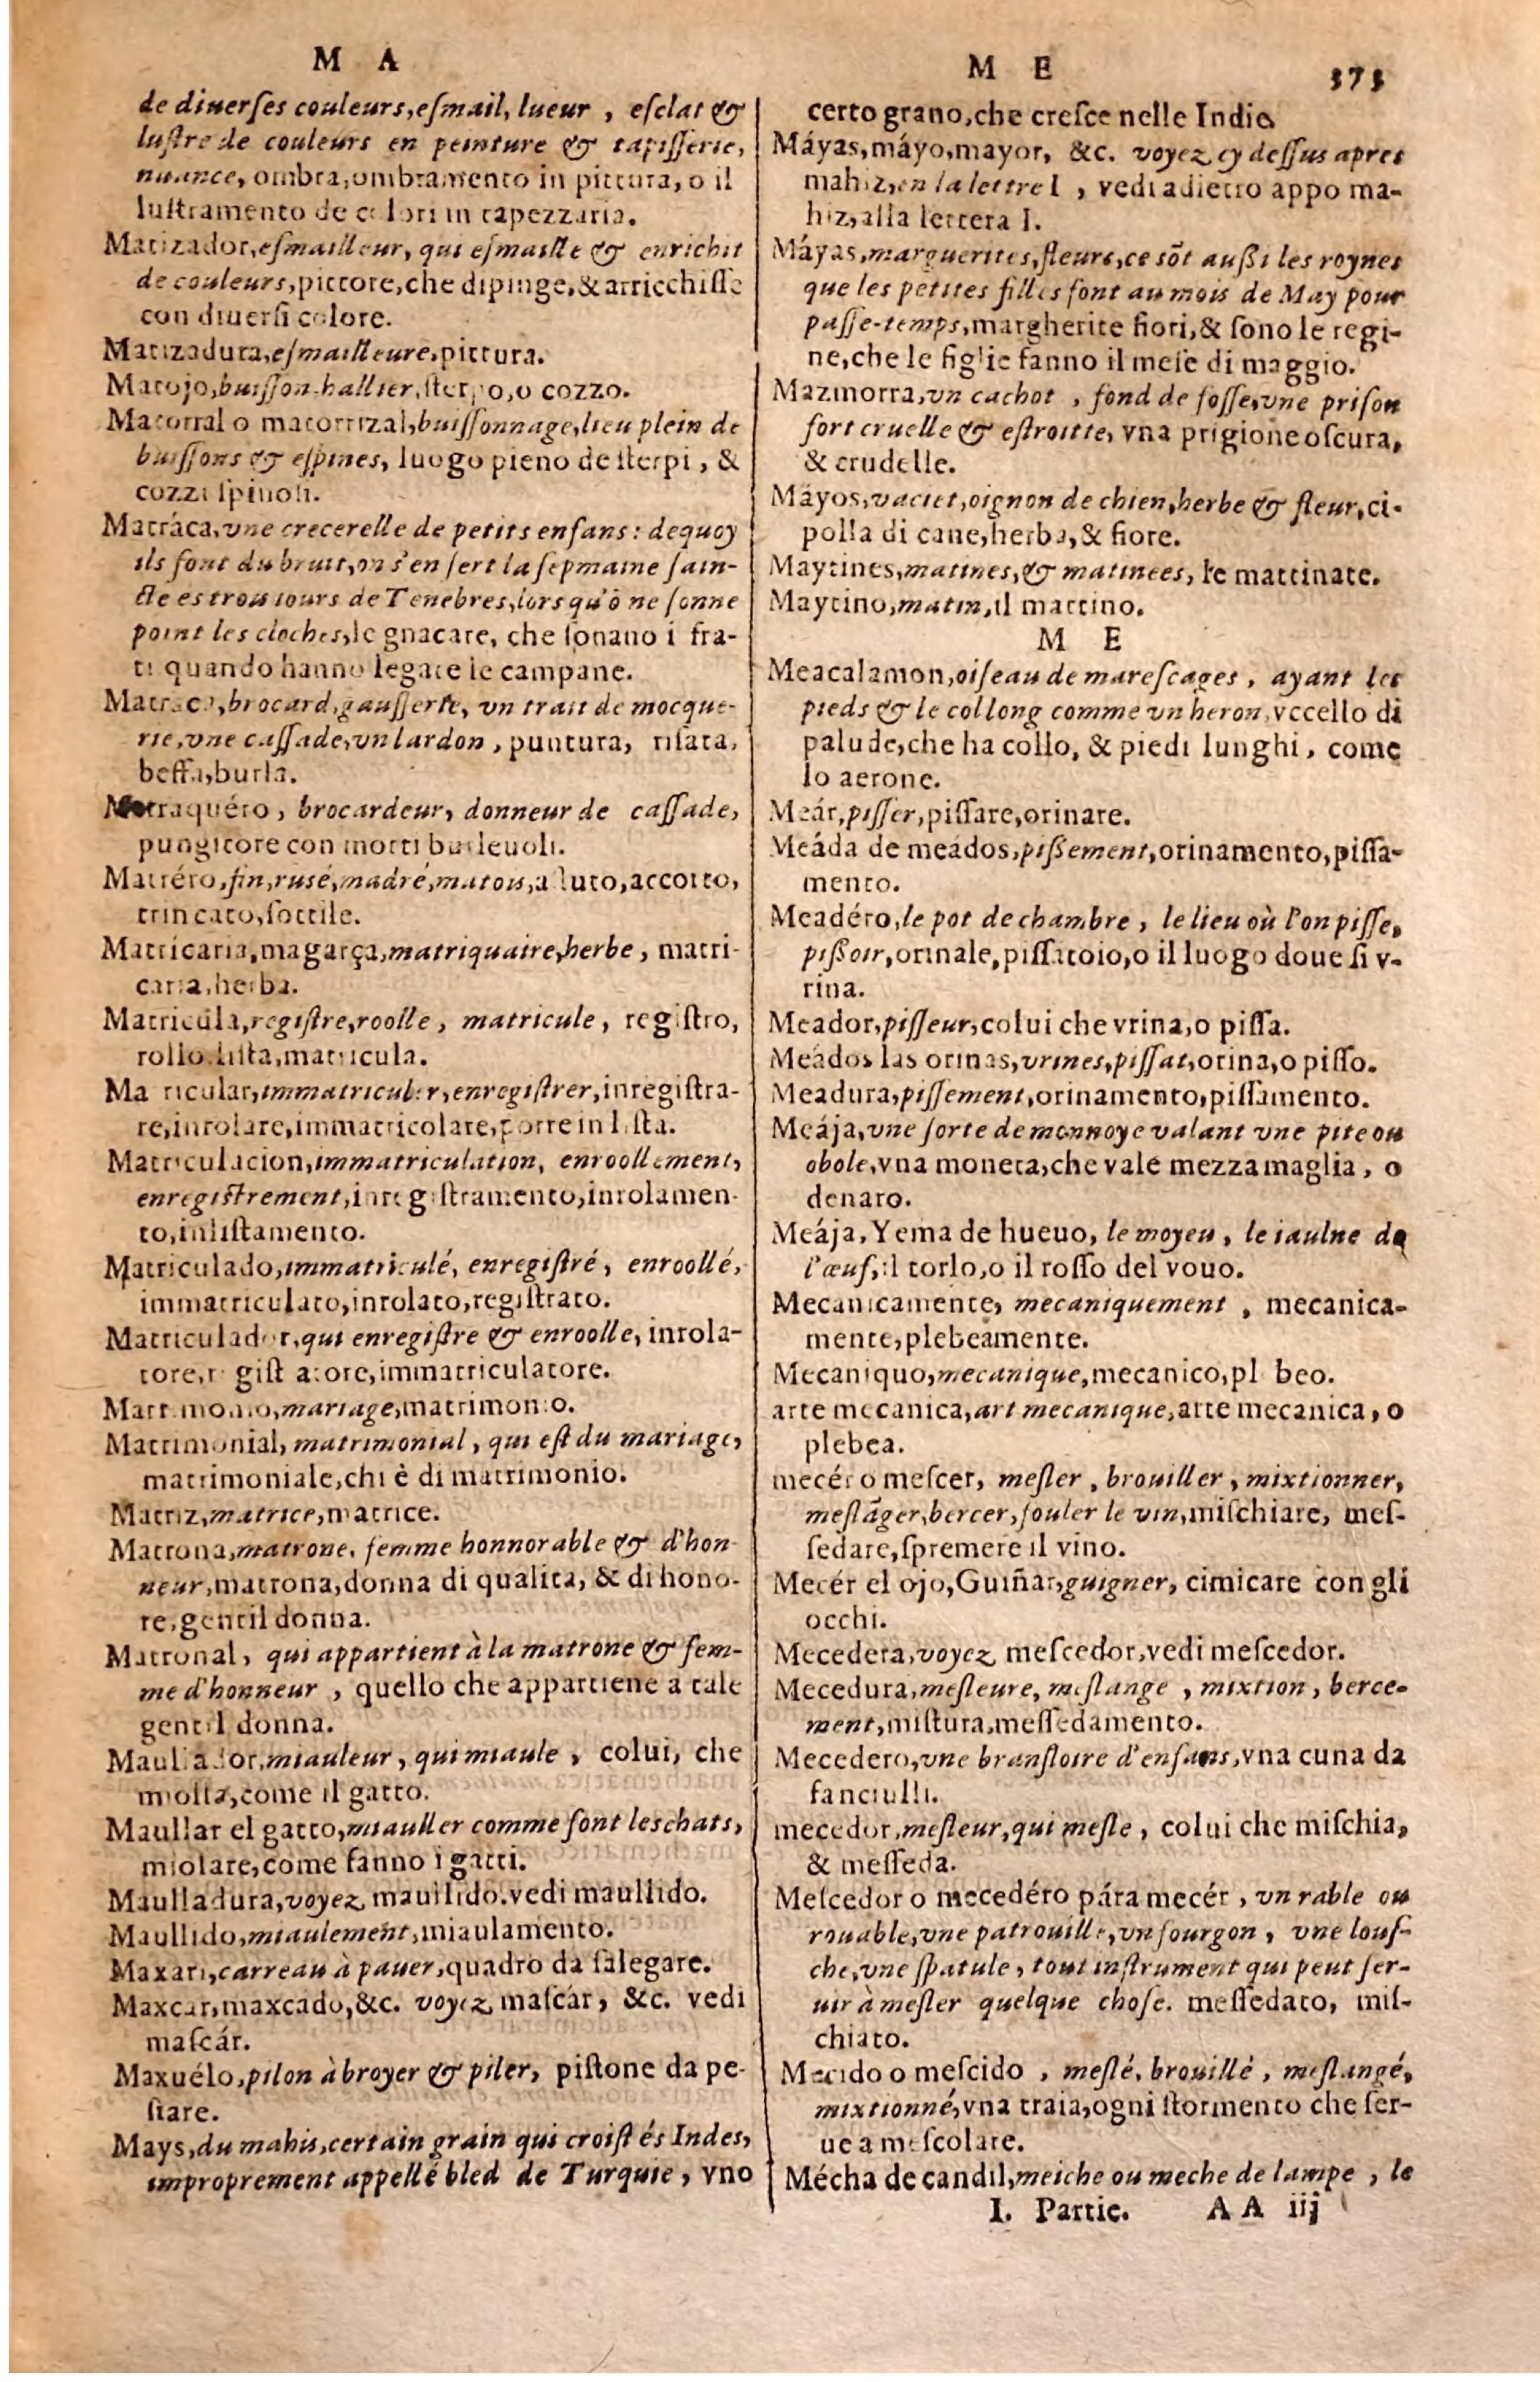 M A
de diuerses couleurs, esmail, lueur, esclat &
lustre de couleurs en peinture & tapisserie,
nuance, ombra, ombramento in pittura, o il
lustramento de colori in tapezzaria.
Matizador, esmailleur, qui esmaille & enrichit
de couleurs, pittore, che dipinge, & arricchisse
con diuersi colore.
Matizadura, esmailleure, pittura.
Matojo, buisson, hallier, sterpo, o cozzo.
Matorral o matorrizal, buissonnage, lieu plein de
buissons & espines, luogo pieno de sterpi, &
cozzi spinosi.
Matráca, vne crecerelle de petits enfans: dequoy
ils font du bruit, on s'en sert la sepmaine sain-
cte es trois iours de Tenebres, lors qu'õ ne sonne
point les cloches, le gnacare, che sonano i fra-
ti quando hanno legate le campane.
Matraca, brocard, gausserie, vn trait de mocque-
rie, vne cassade, vn lardon, puntura, risata,
beffa, burla.
Matraquéro, brocardeur, donneur de cassade,
pungitore con motti burleuoli.
Matréro, fin, rusé, madré, matois, astuto, accorto,
trincato, sottile.
Matricaria, magarça, matriquaire, herbe, matri-
caria, herba.
Matricula, registre, roolle, matricule, registro,
rollo, lista, matricula.
Matricular, immatriculer, enregistrer, inregistra-
re, inrolare, immatricolare, porre in lista.
Matriculacion, immatriculation, enroollement,
enregistrement, inregistramento, inrolamen-
to, inlistamento.
Matriculado, immatriculé, enregistré, enroollé,
immatriculato, inrolato, registrato.
Matriculador, qui enregistre & enroolle, inrola-
tore, registratore, immatriculatore.
Matrimonio, mariage, matrimonio.
Matrimonial, matrimonial, qui est du mariage,
matrimoniale, chi è di matrimonio.
Matriz, matrice, matrice.
Matrona, matrone, femme honnorable & d'hon-
neur, matrona, donna di qualita, & di hono-
re, gentil donna.
Matronal, qui appartient à la matrone & fem-
me d'honneur, quello che appartiene a tale
gentil donna.
Maullador, miauleur, qui miaule, colui, che
miolla, come il gatto.
Maullar el gatto, miauller comme font les chats,
miolare, come fanno i gatti.
Maulladura, voyez maullido. vedi maullido.
Maullido, miaulement, miaulamento.
Maxari, carreau à pauer, quadro da salegare.
Maxcar, maxcado, &c. voyez mascár, &c. vedi
mascár.
Maxuélo, pilon à broyer & piler, pistone da pe-
stare.
Mays, du mahis, certain grain qui croist és Indes,
improprement appellé bled de Turquie, vno
M E 373
certo grano, che cresce nelle Indie
Máyas, máyo, mayor, &c. voyez cy dessus apres
mahiz, en la lettre I, vedi adietro appo ma-
hiz, alla lettera I.
Máyas, marguerites, fleurs, ce sõt aussi les roynes
que les petites filles font au mois de May pour
passe-temps, margherite fiori, & sono le regi-
ne, che le figlie fanno il mese di maggio.
Mazmorra, vn cachot, fond de fosse, vne prison
fort cruelle & estroitte, vna prigione oscura,
& crudelle.
Máyos, vaciet, oignon de chien, herbe & fleur, ci-
polla di cane, herba, & fiore.
Maytines, matines, & matinees, le mattinate.
Maytino, matin, il mattino.
M E
Meacalamon, oiseau de marescages, ayant les
pieds & le col long comme vn heron, vccello di
palude, che ha collo, & piedi lunghi, come
lo aerone.
Meár, pisser, pissare, orinare.
Meáda de meádos, pissement, orinamento, pissa-
mento.
Meadéro, le pot de chambre, le lieu où l'on pisse,
pissoir, orinale, pissatoio, o il luogo doue si v-
rina.
Meador, pisseur, colui che vrina, o pissa.
Meádos las orinas, vrines, pissat, orina, o pisso.
Meadura, pissement, orinamento, pissamento.
Meája, vne sorte de monnoye valant vne pite ou
obole, vna moneta, che vale mezza maglia, o
denaro.
Meája, Yema de hueuo, le moyeu, le iaulne de
l'œuf, il torlo, o il rosso del vouo.
Mecanicamente, mecaniquement, mecanica-
mente, plebeamente.
Mecaniquo, mecanique, mecanico, plebeo.
arte mecanica, art mecanique, arte mecanica, o
plebea.
mecér o mescer, mesler, brouiller, mixtionner,
meslãger, bercer, fouler le vin, mischiare, mes-
sedare, spremere il vino.
Mecér el ojo, Guiñar, guigner, cimicare con gli
occhi.
Mecedera, voyez mescedor, vedi mescedor.
Mecedura, mesleure, meslange, mixtion, berce-
ment, mistura, messedamento.
Mecedero, vne bransloire d'enfans, vna cuna da
fanciulli.
mecedor, mesleur, qui mesle, colui che mischia,
& messeda.
Mescedor o mecedéro pára mecér, vn rable ou
rouable, vne patrouille, vn fourgon, vne lous-
che, vne spatule, tout instrument qui peut ser-
uir à mesler quelque chose. messedato, mis-
chiato.
Mecido o mescido, meslé, brouillé, meslangé,
mixtionné, vna traia, ogni stormento che ser-
ue a mescolare.
Mécha de candil, meiche ou meche de lampe, le
I. Partie. A A iij